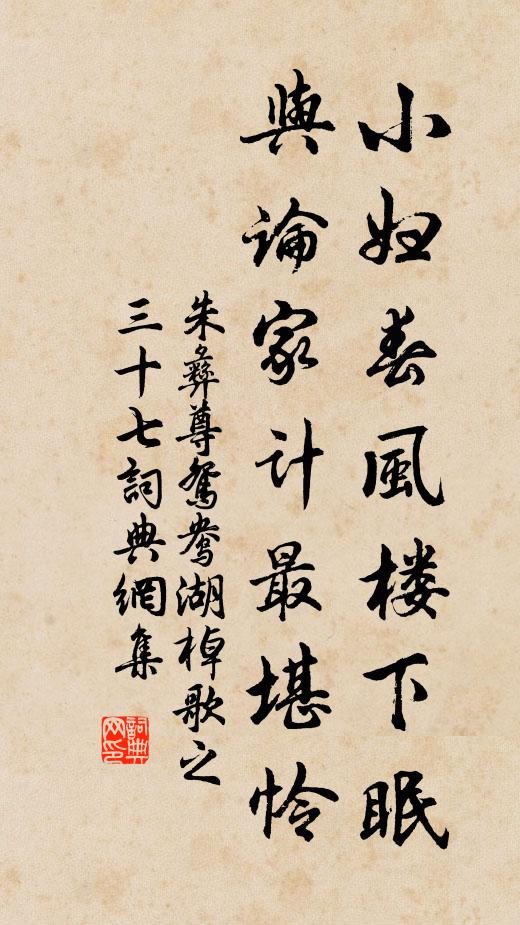 小妇春風楼下眠
與論家計最堪怜
朱彝尊鸳鸯湖棹歌之
三十七詞典網集
詞典网印